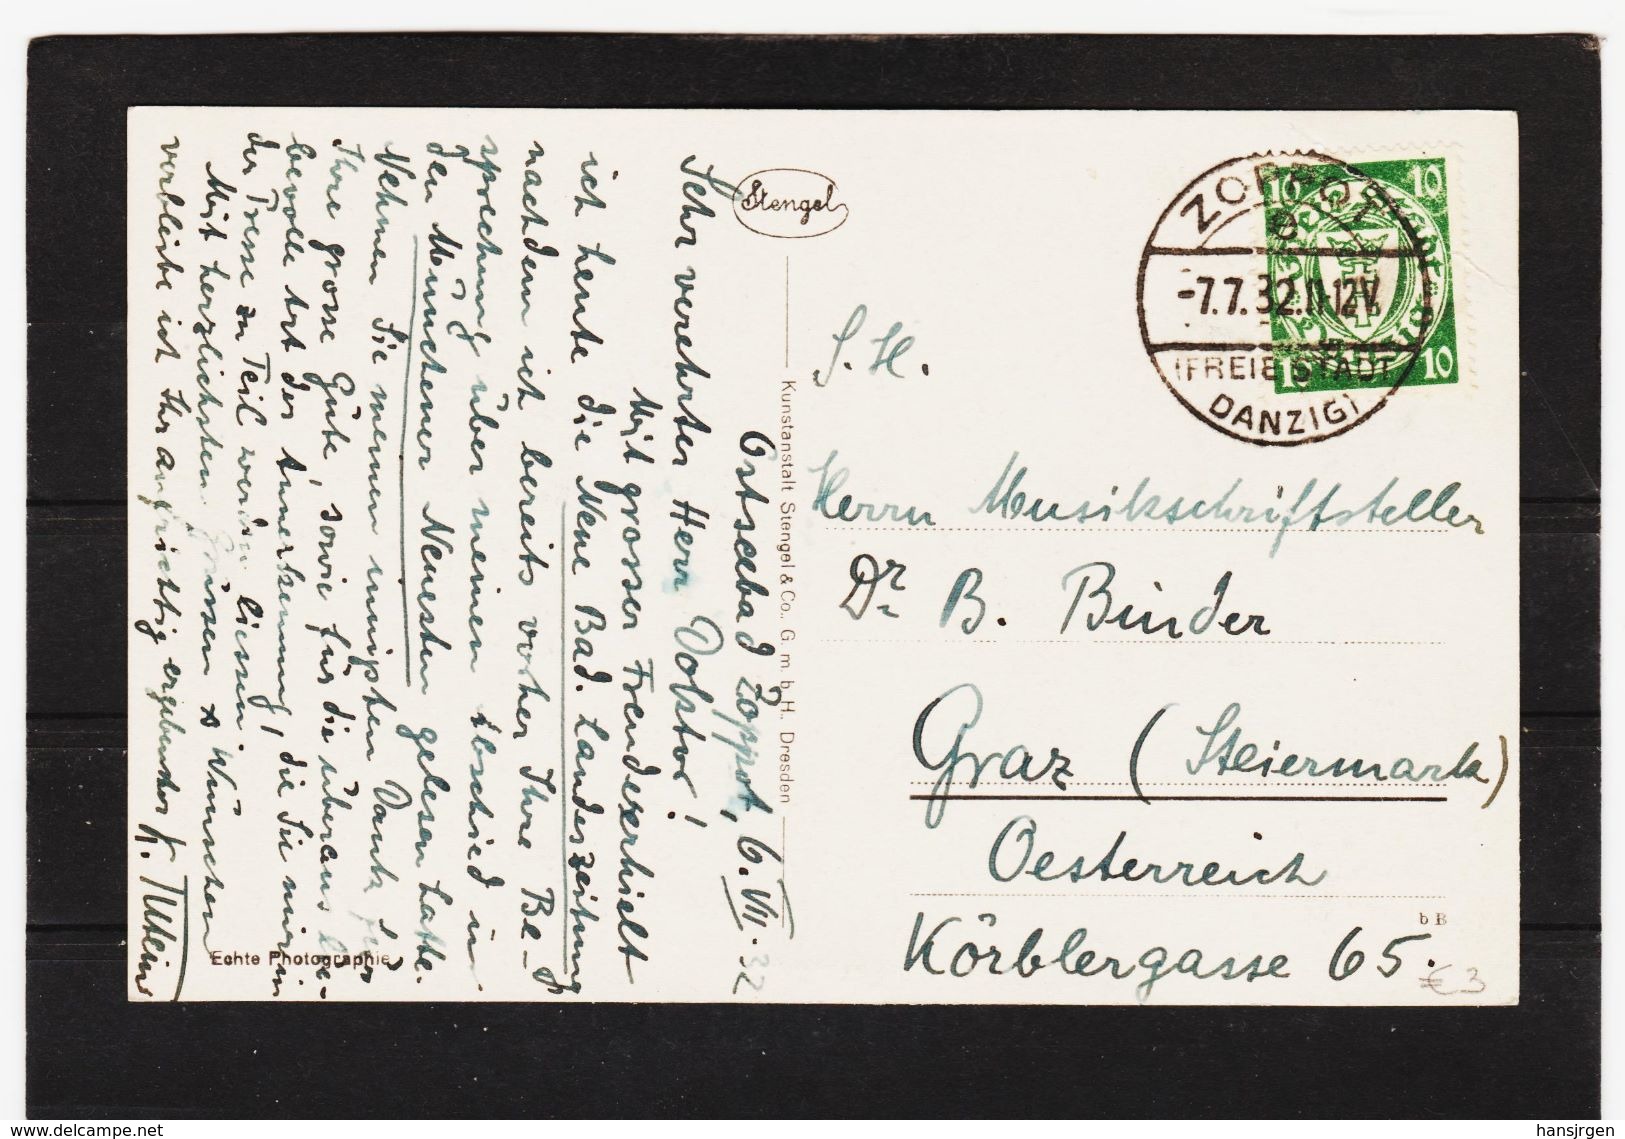 Stengel
Ostseebad Zoppot, 6. VII. 32
Sehr verehrter Herr Doktor!
Mit grosser Freude erhielt
ich heute die Neue Bad. Landeszeitung
nachdem ich bereits vorher Ihre Be-
sprechung über meinen Abschied in
den Münchener Neuesten gelesen hatte.
Nehmen Sie meinen innigsten Dank für
Ihre grosse Güte, sowie für die überaus lie-
bevolle Art der Anerkennung, die Sie mir in
der Presse zu Teil werden liessen.
Mit herzlichsten Grüssen & Wünschen
verbleibe ich Ihr aufrichtig ergebenster K.
Echte Photographie
Kunstanstalt Stengel & Co., G. m. b. H., Dresden
ZOPPOT
e
-7.7.32.11-12V.
(FREIE STADT
DANZIG)
10
10
10
S. H.
Herrn Musikschriftsteller
Dr. B. Binder
Graz (Steiermark)
Oesterreich
Körblergasse 65.
b B
€ 3
www.delcampe.net
hansjrgen